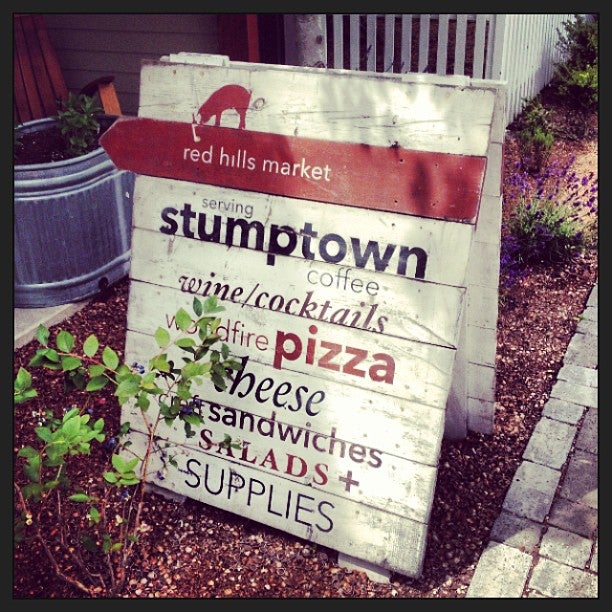 red hills market
serving
stumptown
coffee
wine/cocktails
woodfire pizza
cheese
sandwiches
SALADS +
SUPPLIES